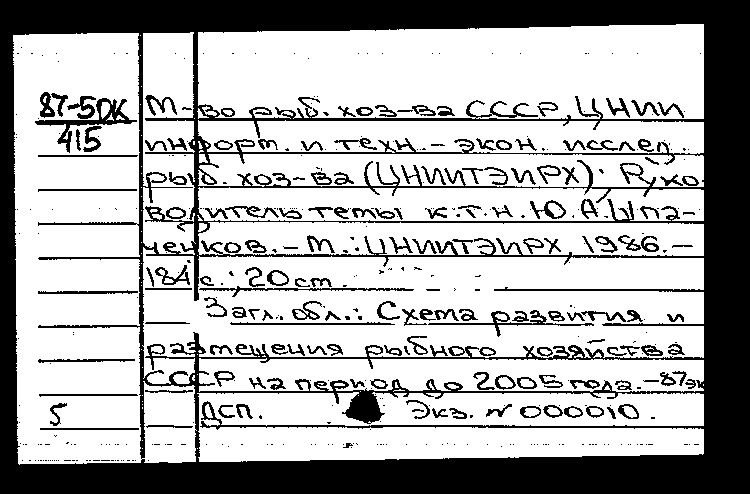 87-5ДК
415
М-во рыб. хоз-ва СССР, ЦНИИ
информ. и техн.-экон. исслед.
рыб. хоз-ва (ЦНИИТЭИРХ); Руко-
водитель темы к.т.н. Ю.А.
ченков.-М.: ЦНИИТЭИРХ, 1986.-
184 с.; 20 cm.
Загл. обл.: Схема развития и
размещения рыбного хозяйства
СССР на период до 2005 года.-87эк
5 ДСП. Экз. N 000010.